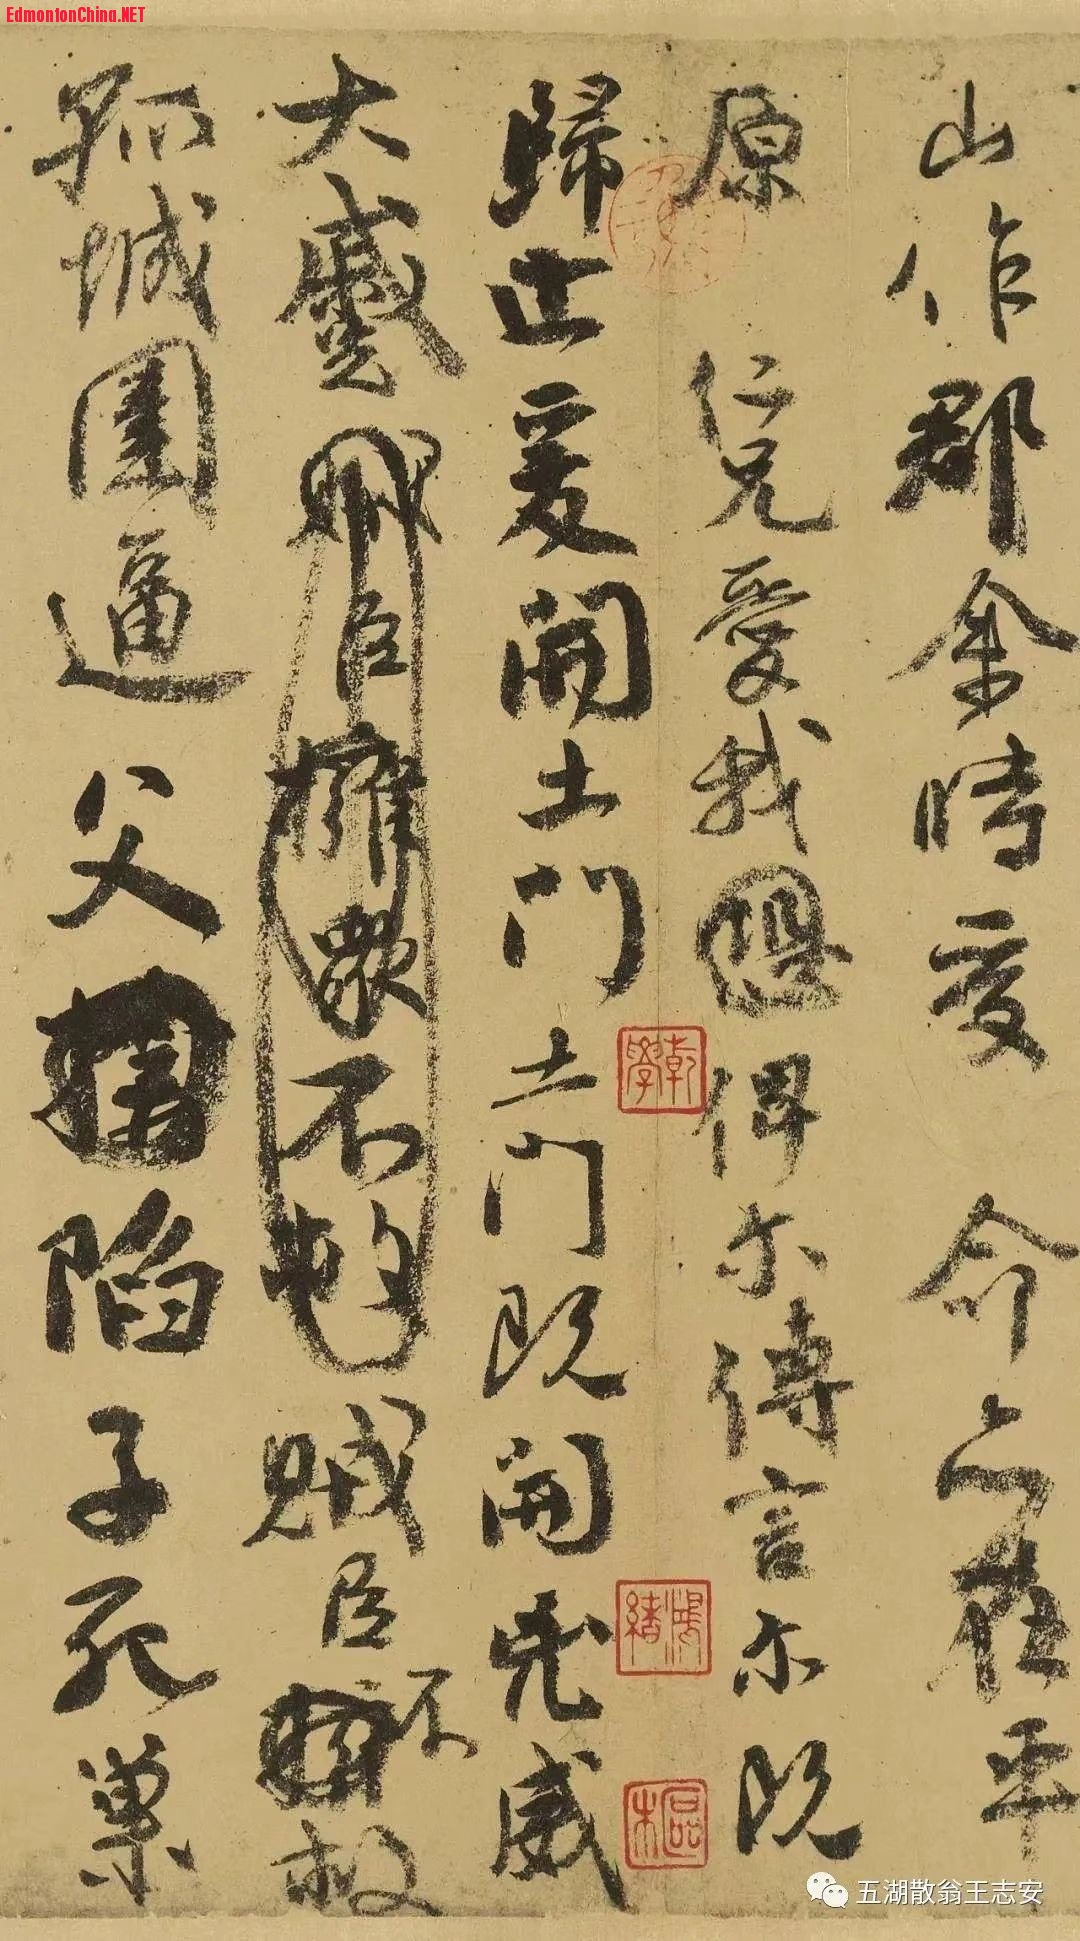 EdmontonChina.NET
山作郡余時受命亦在平
原仁兄愛我恐俾尓傳言尓既
歸止爰開土門土門既開兇威
大蹙賊臣擁衆不救賊臣不救
孤城圍逼父陷子死巢
乾學
鴻緒
五湖散翁王志安